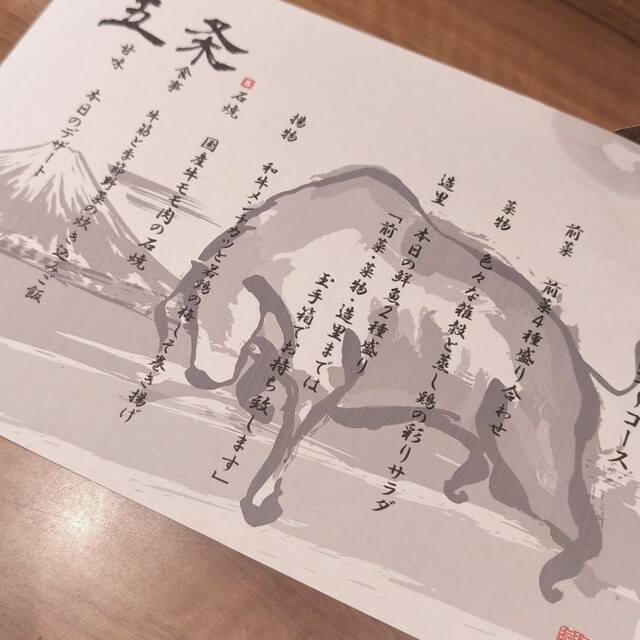 リコース
前菜 前菜4種盛り合わせ
菜物 色々な雑穀と蒸し鶏の彩りサラダ
造里 本日の鮮魚2種盛り
「前菜・菜物・造里までは
玉手箱でお持ち致します」
揚物 和牛メンチカツと若鶏のおかき揚げ
石焼 国産牛モモ肉の石焼
食事 牛時雨と
甘味 本日のデザート
五条